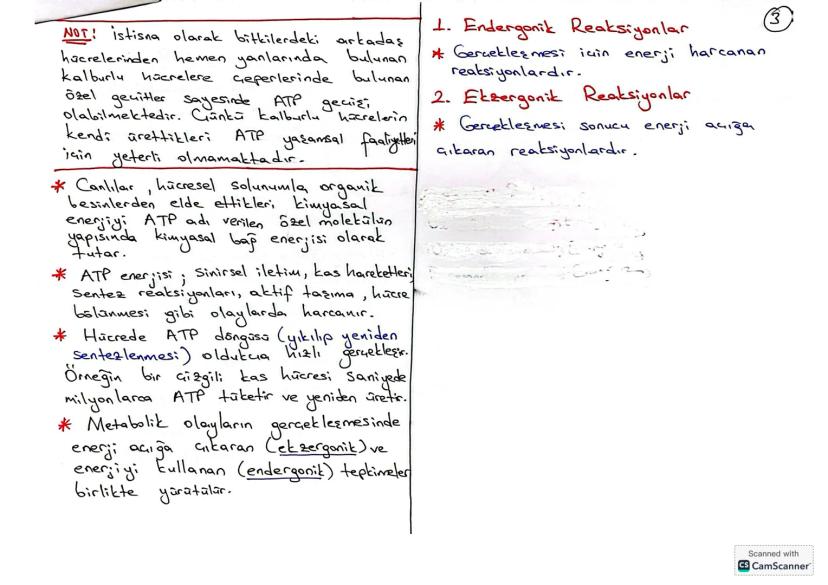 NOT! İstisna olarak bitkilerdeki arkadaş
hücrelerinden hemen yanlarında bulunan
kalburlu hücrelere çeperlerinde bulunan
özel geçitler sayesinde ATP geçişi
olabilmektedir. Çünkü kalburlu hücrelerin
kendi ürettikleri ATP yaşamsal faaliyetleri
için yeterli olmamaktadır.
* Canlılar, hücresel solunumla organik
besinlerden elde ettikleri kimyasal
enerjiyi ATP adı verilen özel molekülün
yapısında kimyasal bağ enerjisi olarak
tutar.
* ATP enerjisi; sinirsel iletim, kas hareketleri,
sentez reaksiyonları, aktif taşıma, hücre
bölünmesi gibi olaylarda harcanır.
* Hücrede ATP döngüsü (yıkılıp yeniden
sentezlenmesi) oldukça hızlı gerçekleşir.
Örneğin bir çizgili kas hücresi saniyede
milyonlarca ATP tüketir ve yeniden üretir.
* Metabolik olayların gerçekleşmesinde
enerji açığa çıkaran (ekzergonik) ve
enerjiyi kullanan (endergonik) tepkimeler
birlikte yürütülür.
3
1. Endergonik Reaksiyonlar
* Gerçekleşmesi için enerji harcanan
reaksiyonlardır.
2. Ekzergonik Reaksiyonlar
* Gerçekleşmesi sonucu enerji açığa
çıkaran reaksiyonlardır.
Scanned with
CS CamScanner